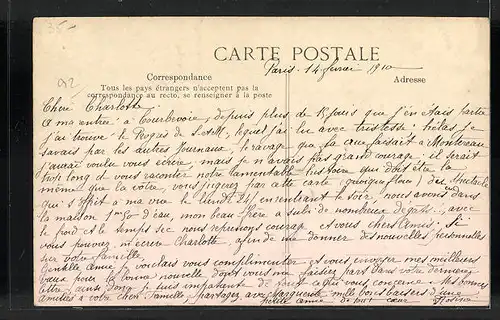 35-
92
CARTE POSTALE
Paris. 14 février 1910
Correspondance
Adresse
Tous les pays étrangers n'acceptent pas la
correspondance au recto, se renseigner à la poste
Cher Charlotte
A ma rentrée à Courbevoie, depuis plus de 15 jours que j'en étais partie
j'ai trouvé le de S. et M. lequel j'ai lu avec tristesse hélas je
savais par les autres Journaux, le ravage que ça faisait à Montereau
j'aurai voulu vous écrire, mais je n'avais pas grand courage. il serait
trop long de vous raconter notre lamentable histoire que doit être la
même que la vôtre, vous jugerez par cette carte (quoique floue) du spectacle
qui s'offrit à ma vue le Vendi 24, en rentrant le soir, nous avions dans
la maison 1m80 d'eau, mon beau-père a subi de nombreux dégâts, avec
le froid et le temps sec nous reprenons courage et vous chers Amis. Si
vous pouvez, m'écrire Charlotte, afin de me donner des nouvelles personnelles
sur votre famille.
Gentille amie je voudrais vous complimenter et vous envoyer mes meilleurs
vœux pour la bonne nouvelle dont vous me faisiez part dans votre dernière
lettre, aussi donc je suis impatiente de tout ce qui vous concerne. Mes bonnes
amitiés à votre cher Famille, partagez avec Marguerite mille bons baisers d'une
petite amie de tout cœur